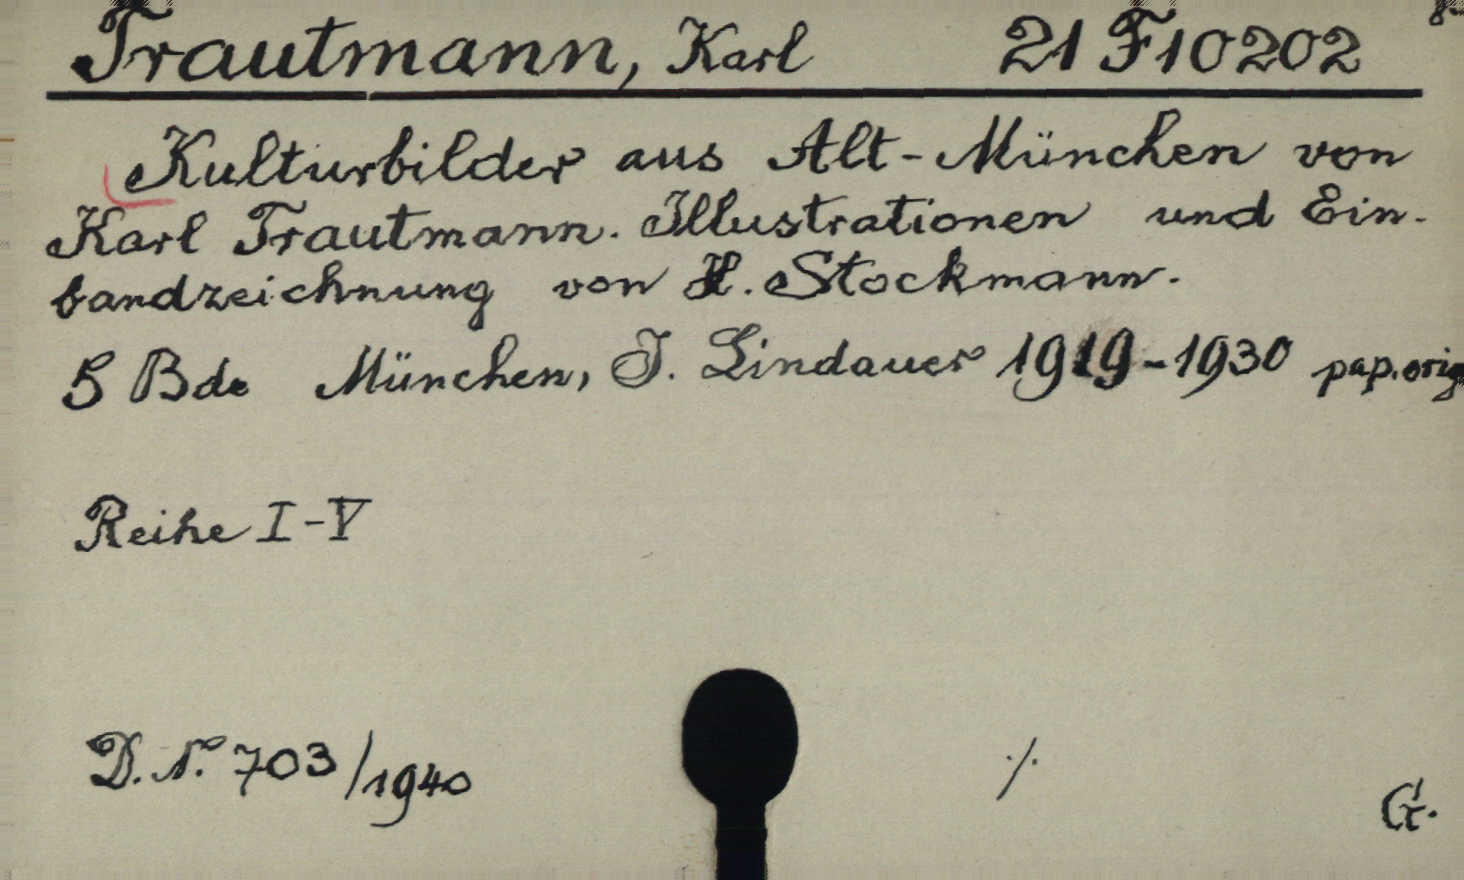 Trautmann, Karl 21 F 10202
Kulturbilder aus Alt-München von
Karl Trautmann. Illustrationen und Ein-
bandzeichnung von H. Stockmann.
5 Bde München, J. Lindauer 1919-1930 pap. orig
Reihe I-V
D. N° 703/1940
·/·
G.